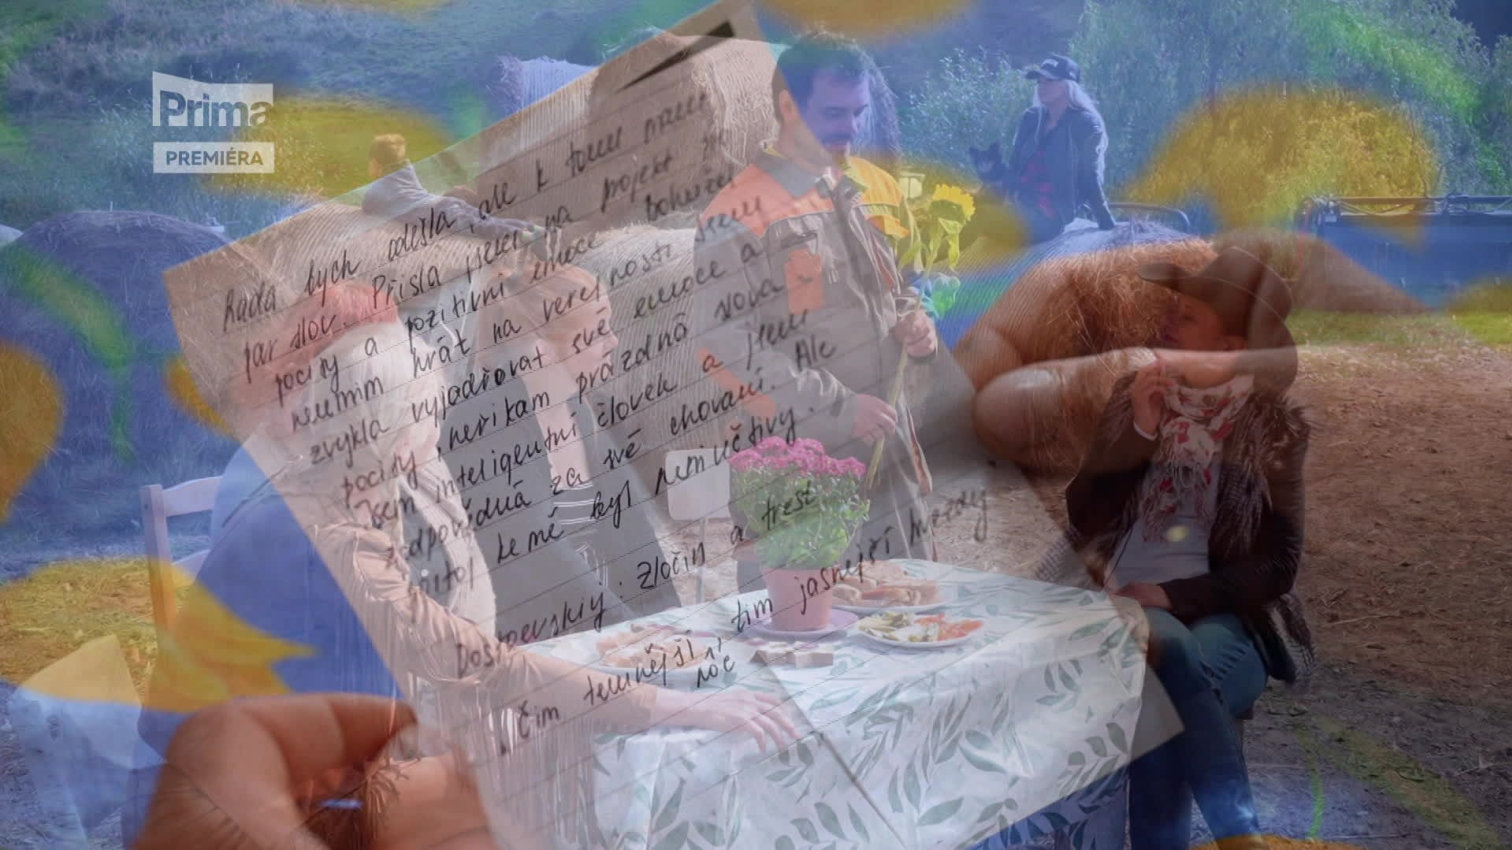 Prima
PREMIÉRA
Ráda bych odešla, ale k tomu
par slov. Přišla jsem na projekt
pocity a pozitivní emoce bohužel
neumím hrát na veřejnosti jsem
zvykla vyjadřovat své emoce a
pocity, neříkam prázdná slova.
Jsem inteligentní člověk a jsem
zodpovědná za své chovaní. Ale
ke mé byl nenivěčtivy.
Zločin a trest
Čím temnější noc, tím jasnější hvězdy